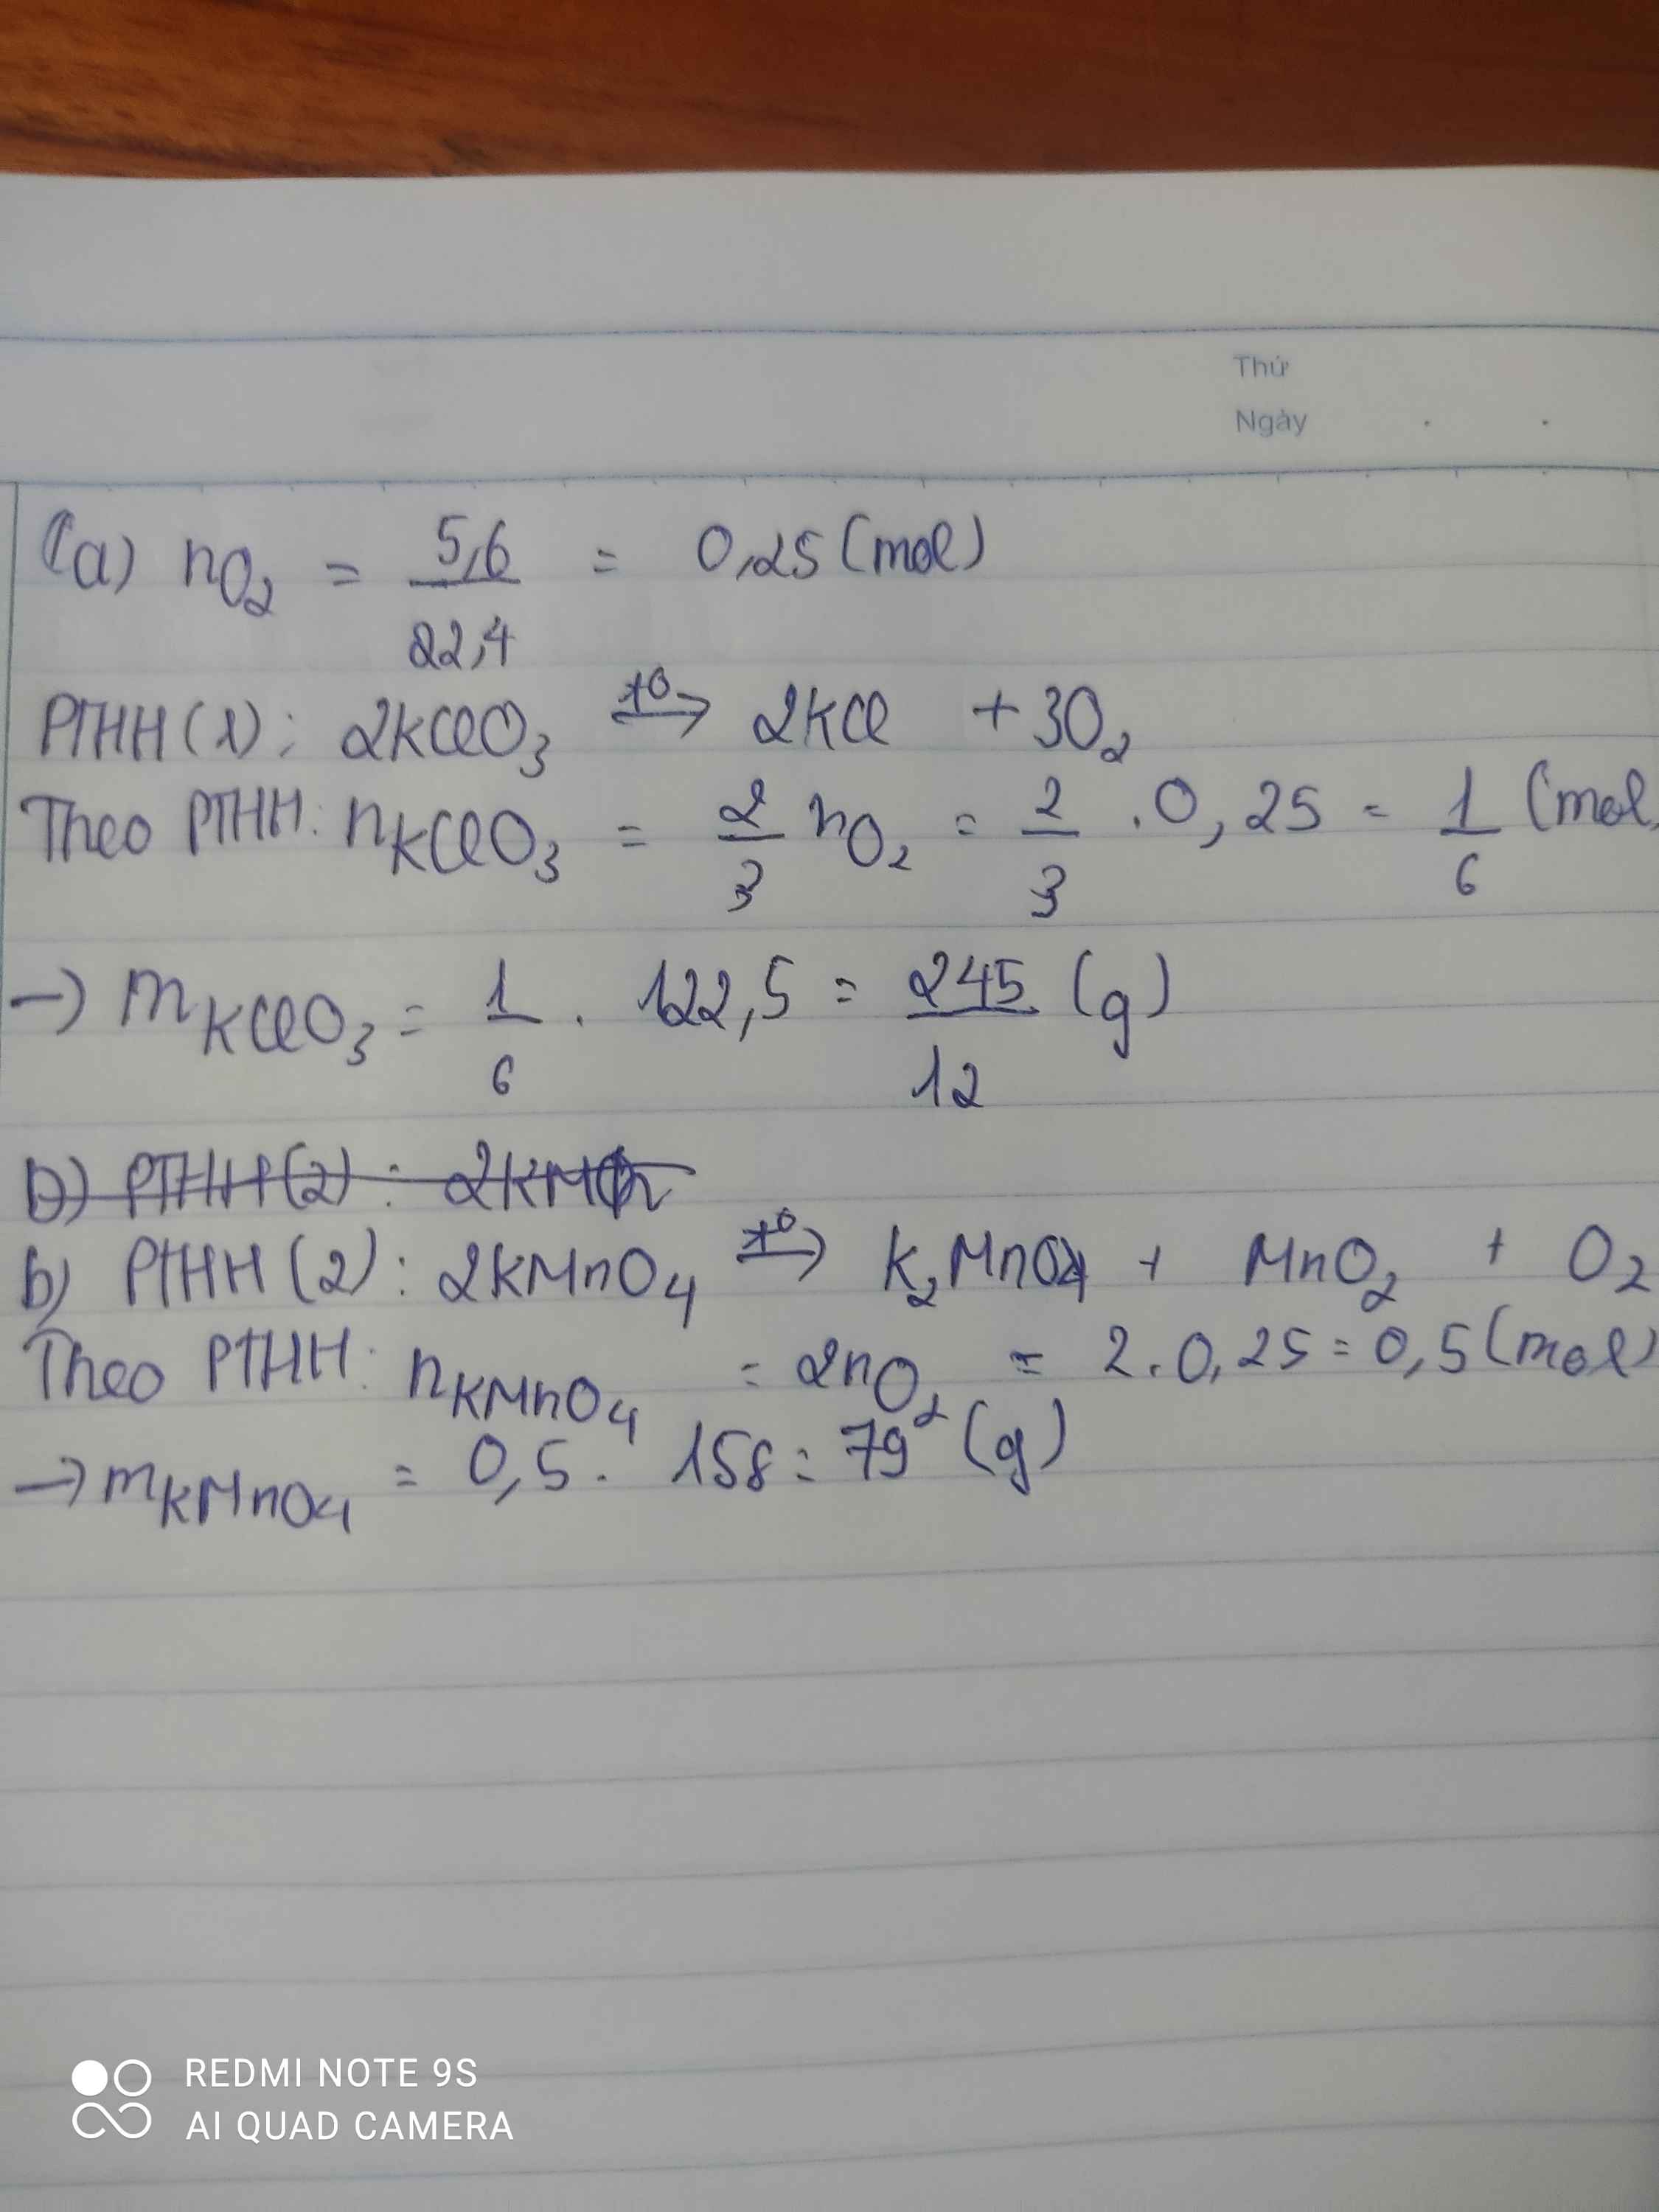 Thứ
Ngày
(a) nO₂ = 5,6/22,4 = 0,25 (mol)
PTHH (1): 2KClO₃ t⁰→ 2KCl + 3O₂
Theo PTHH: nKClO₃ = 2/3 nO₂ = 2/3 . 0,25 = 1/6 (mol
→ mKClO₃ = 1/6 . 122,5 = 245/12 (g)
b) PTHH (2): 2KMn
b) PTHH (2): 2KMnO₄ t⁰→ K₂MnO₄ + MnO₂ + O₂
Theo PTHH: nKMnO₄ = 2nO₂ = 2.0,25 = 0,5 (mol)
→ mKMnO₄ = 0,5 . 158 = 79 (g)
REDMI NOTE 9S
AI QUAD CAMERA